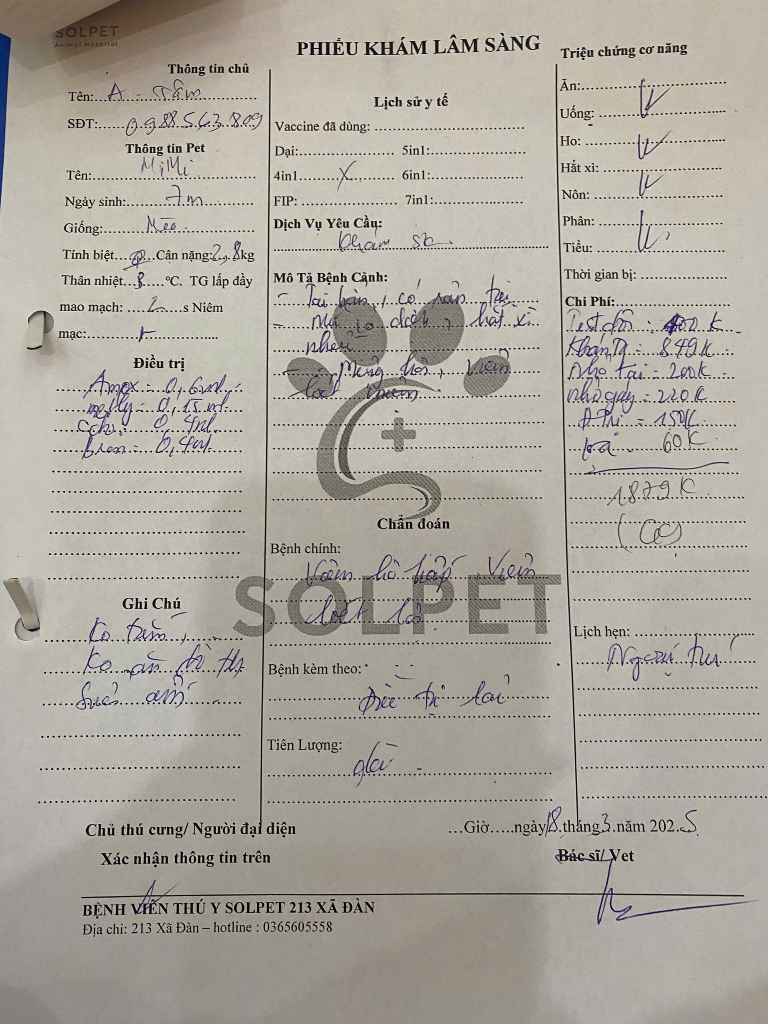 SOLPET
Animal Hospital
PHIẾU KHÁM LÂM SÀNG
Thông tin chủ
Tên: A - Tâm
SĐT: 0988.563.809
Thông tin Pet
Tên: MiMi
Ngày sinh: 7m
Giống: Mèo
Tính biệt ♀ Cân nặng: 2,8kg
Thân nhiệt °C. TG lấp đầy
mao mạch: 2 s Niêm
mạc:
Điều trị
Amox = 0,6ml
0,15 ml
0,4ml
0,4ml
Ghi Chú
Ko tắm,
Ko ăn
ấm
Lịch sử y tế
Vaccine đã dùng:
Dại: 5in1:
4in1 X 6in1:
FIP: 7in1:
Dịch Vụ Yêu Cầu:
Khám sk
Mô Tả Bệnh Cảnh:
- Tai bẩn, có
- Mũi có dịch, hắt xì
nhiều
- Miệng hôi, viêm
loét
Chẩn đoán
Bệnh chính:
Viêm hô hấp Viêm
loét
Bệnh kèm theo:
Tiên Lượng:
SOLPET
Triệu chứng cơ năng
Ăn:
Uống:
Ho:
Hắt xì:
Nôn:
Phân:
Tiểu:
Thời gian bị:
Chi Phí:
Test : 400K
849K
Nhỏ tai = 200K
nhỏ gáy = 220K
= 150K
60K
1879K
Lịch hẹn:
Ngoại trú
Chủ thú cưng/ Người đại diện
Xác nhận thông tin trên
Giờ ngày 18 tháng 3 năm 2025
Bác sĩ/ Vet
BỆNH VIỆN THÚ Y SOLPET 213 XÃ ĐÀN
Địa chỉ: 213 Xã Đàn – hotline : 0365605558